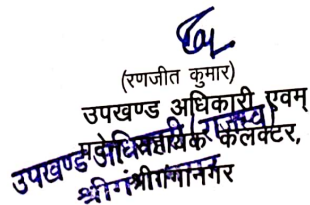 (रणजीत कुमार)
उपखण्ड अधिकारी एवम्
सहायक कलक्टर,
श्रीगंगानगर
उपखण्ड अधिकारी (राजस्व)